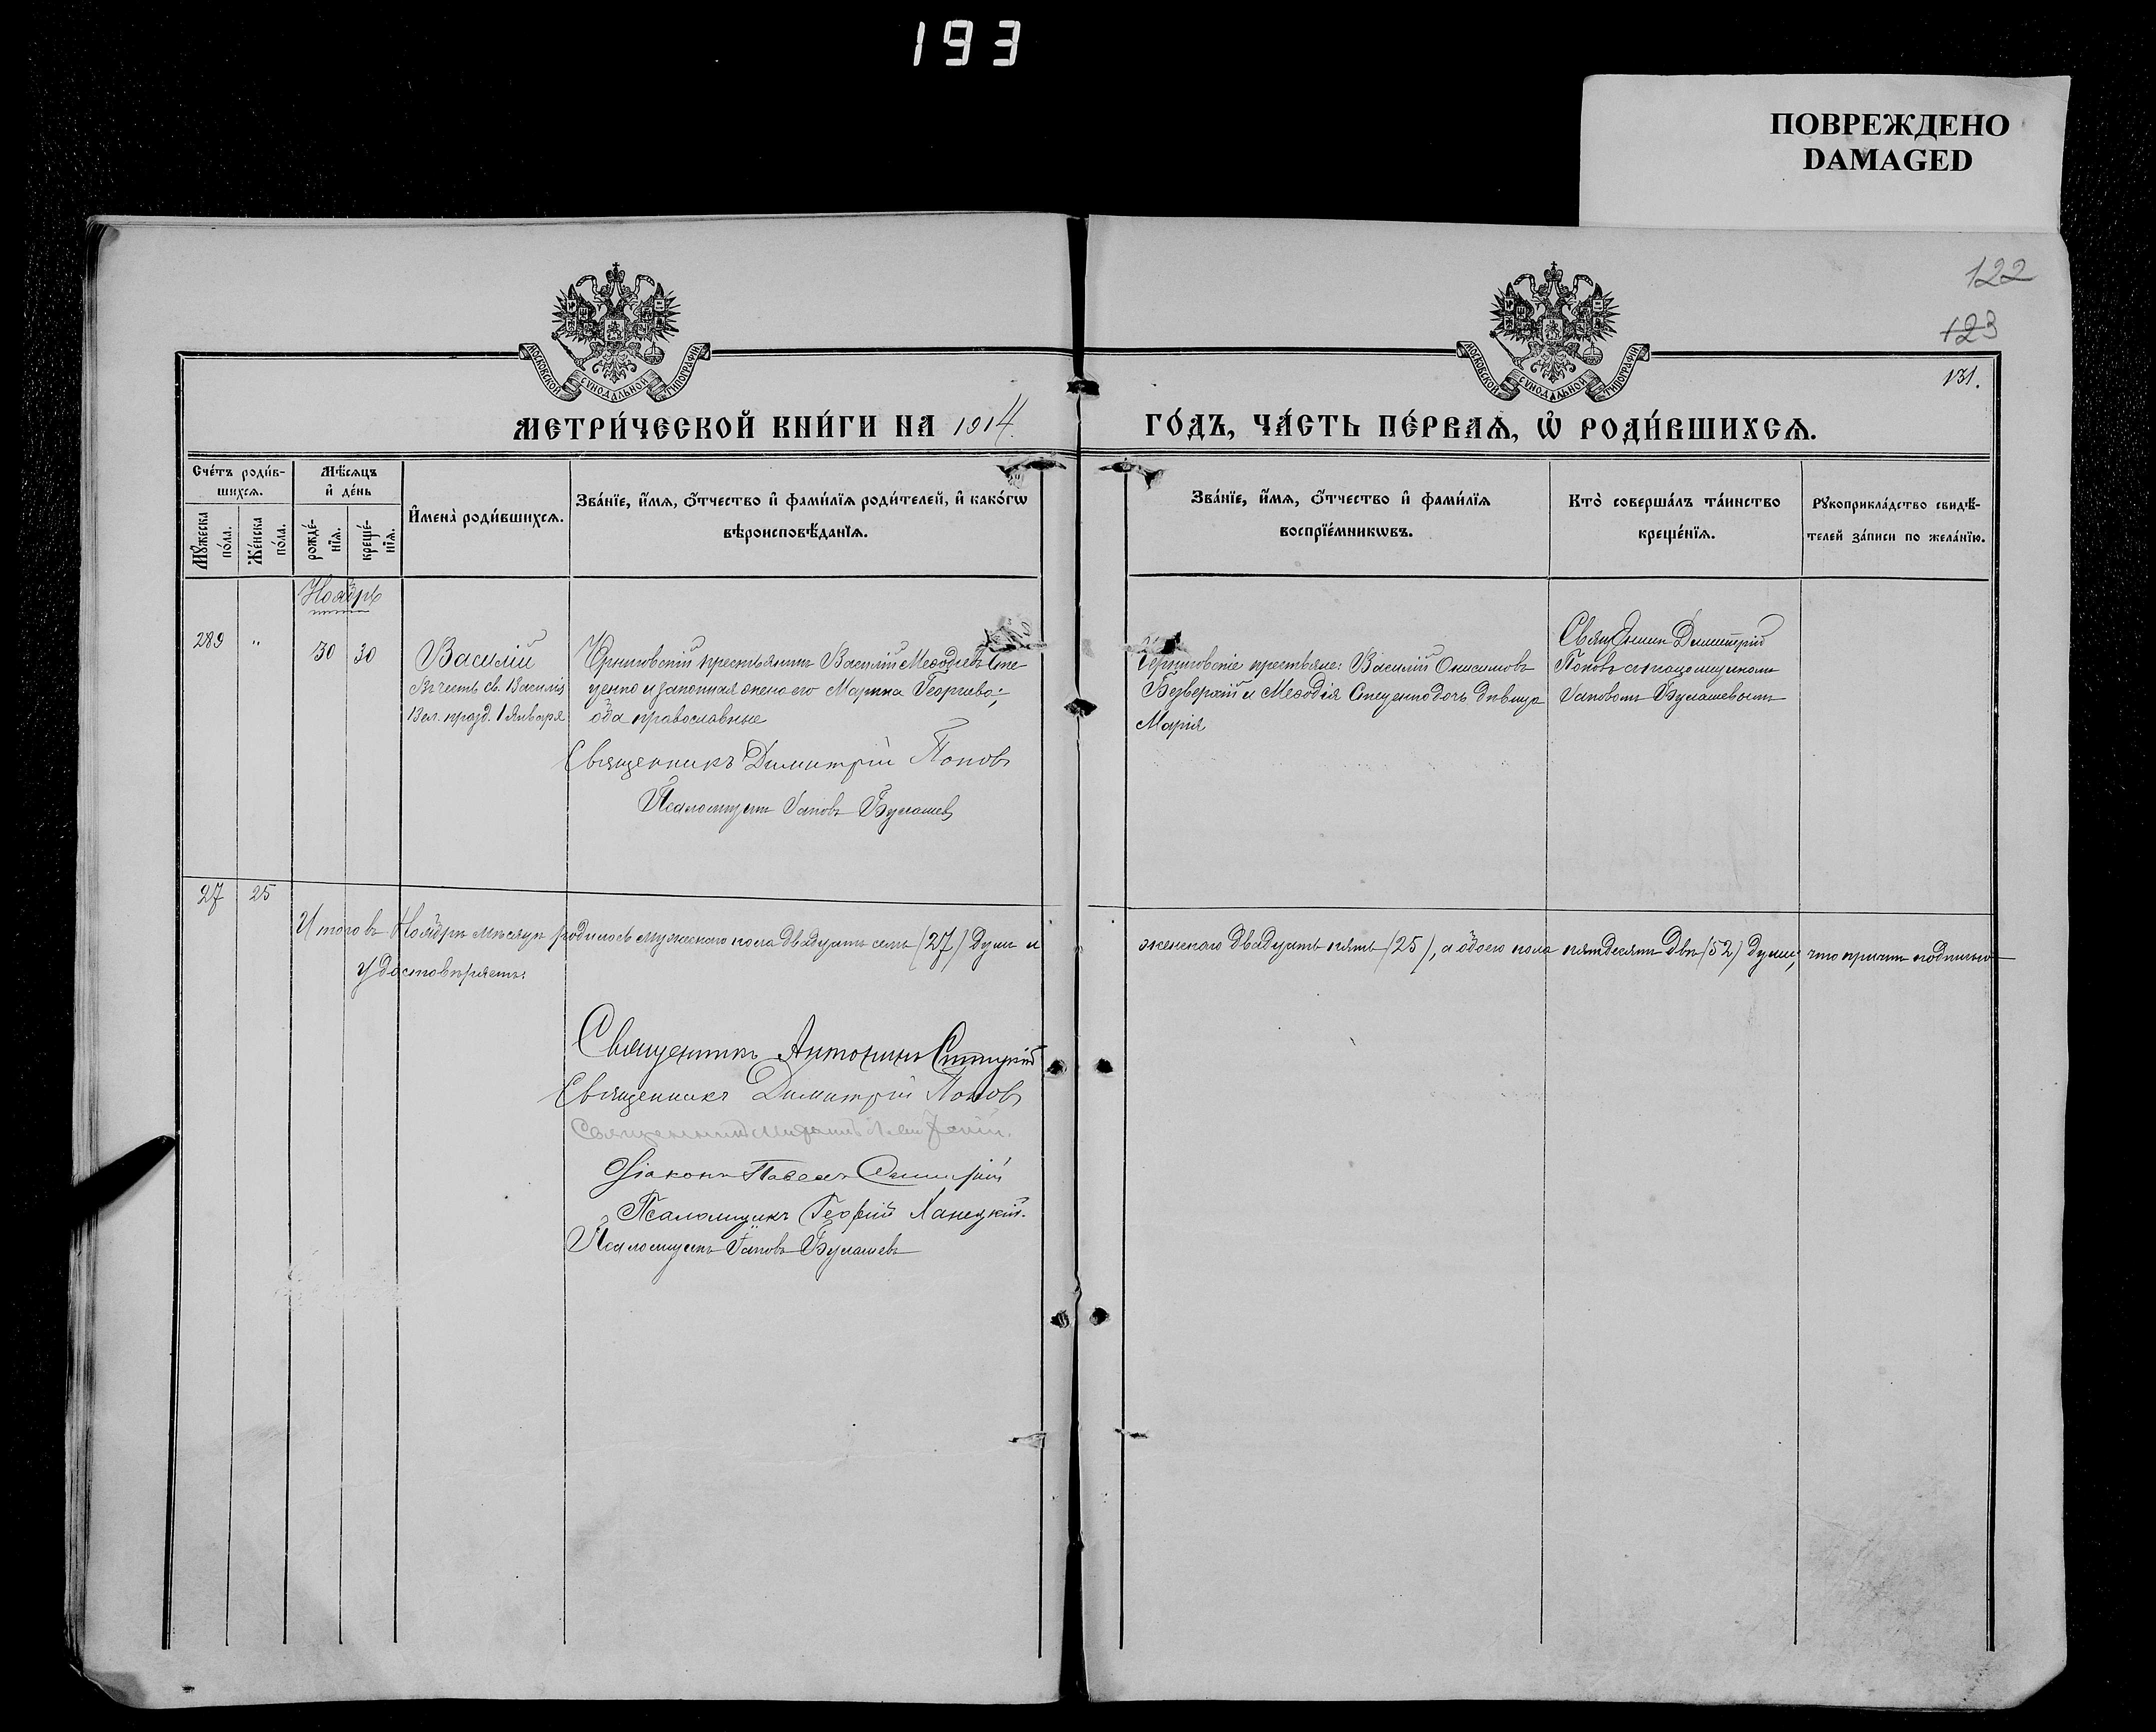 193
ПОВРЕЖДЕНО
DAMAGED
122
123
131.
МОСКОВСКОЙ СѴНОДАЛЬНОЙ ТИПОГРАФІИ
МОСКОВСКОЙ СѴНОДАЛЬНОЙ ТИПОГРАФІИ
МЕТРИ́ЧЕСКОЙ КНИ́ГИ НА 1914.
ГО́ДЪ, ЧА́СТЬ ПЕ́РВАѦ, Ѡ҆ РОДИ́ВШИХСѦ.
Сче́тъ роди́в-
шихсѧ.
Мꙋ́жеска по́ла.
Же́нска по́ла.
Мѣ́сѧцъ
и҆ де́нь
рожде́-
нїѧ.
креще́-
нїѧ.
И҆мена̀ роди́вшихсѧ.
Зва́нїе, и҆́мѧ, ѻ҆́тчество и҆ фами́лїѧ роди́телей, и҆ како́гѡ
вѣроисповѣ́данїѧ.
Зва́нїе, и҆́мѧ, ѻ҆́тчество и҆ фами́лїѧ
воспрїе́мникѡвъ.
Кто̀ соверша́лъ та́инство
креще́нїѧ.
Рꙋкоприкла́дство свидѣ́-
телей за́писи по жела́нїю.
Ноябрь
289 " 30 30
Василій
Въ честь св. Василія
Вел. празд. 1 Января
крестьянинъ Василій Меѳодіевъ Сте
ценко и законная жена его Марина Георгіева;
оба православные
Священникъ Димитрій Поповъ
Псаломщикъ Іаковъ Булашевъ
крестьяне: Василій Онисимовъ
Безверхій и Меѳодія Стеценко дочь дѣвица
Марія
Священник Димитрій
Поповъ съ псаломщикомъ
Іаковомъ Булашевымъ
27 25
Итого въ Ноябрѣ мѣсяцѣ родилось мужескаго пола двадцать семь (27) душъ и
женскаго двадцать пять (25), а обоего пола пятьдесятъ двѣ (52) души; что причтъ подписью
удостовѣряетъ:
Священникъ Антонинъ
Священникъ Димитрій Поповъ
Священникъ
Діаконъ Павелъ
Псаломщикъ Георгій Ханецкій.
Псаломщикъ Іаковъ Булашевъ